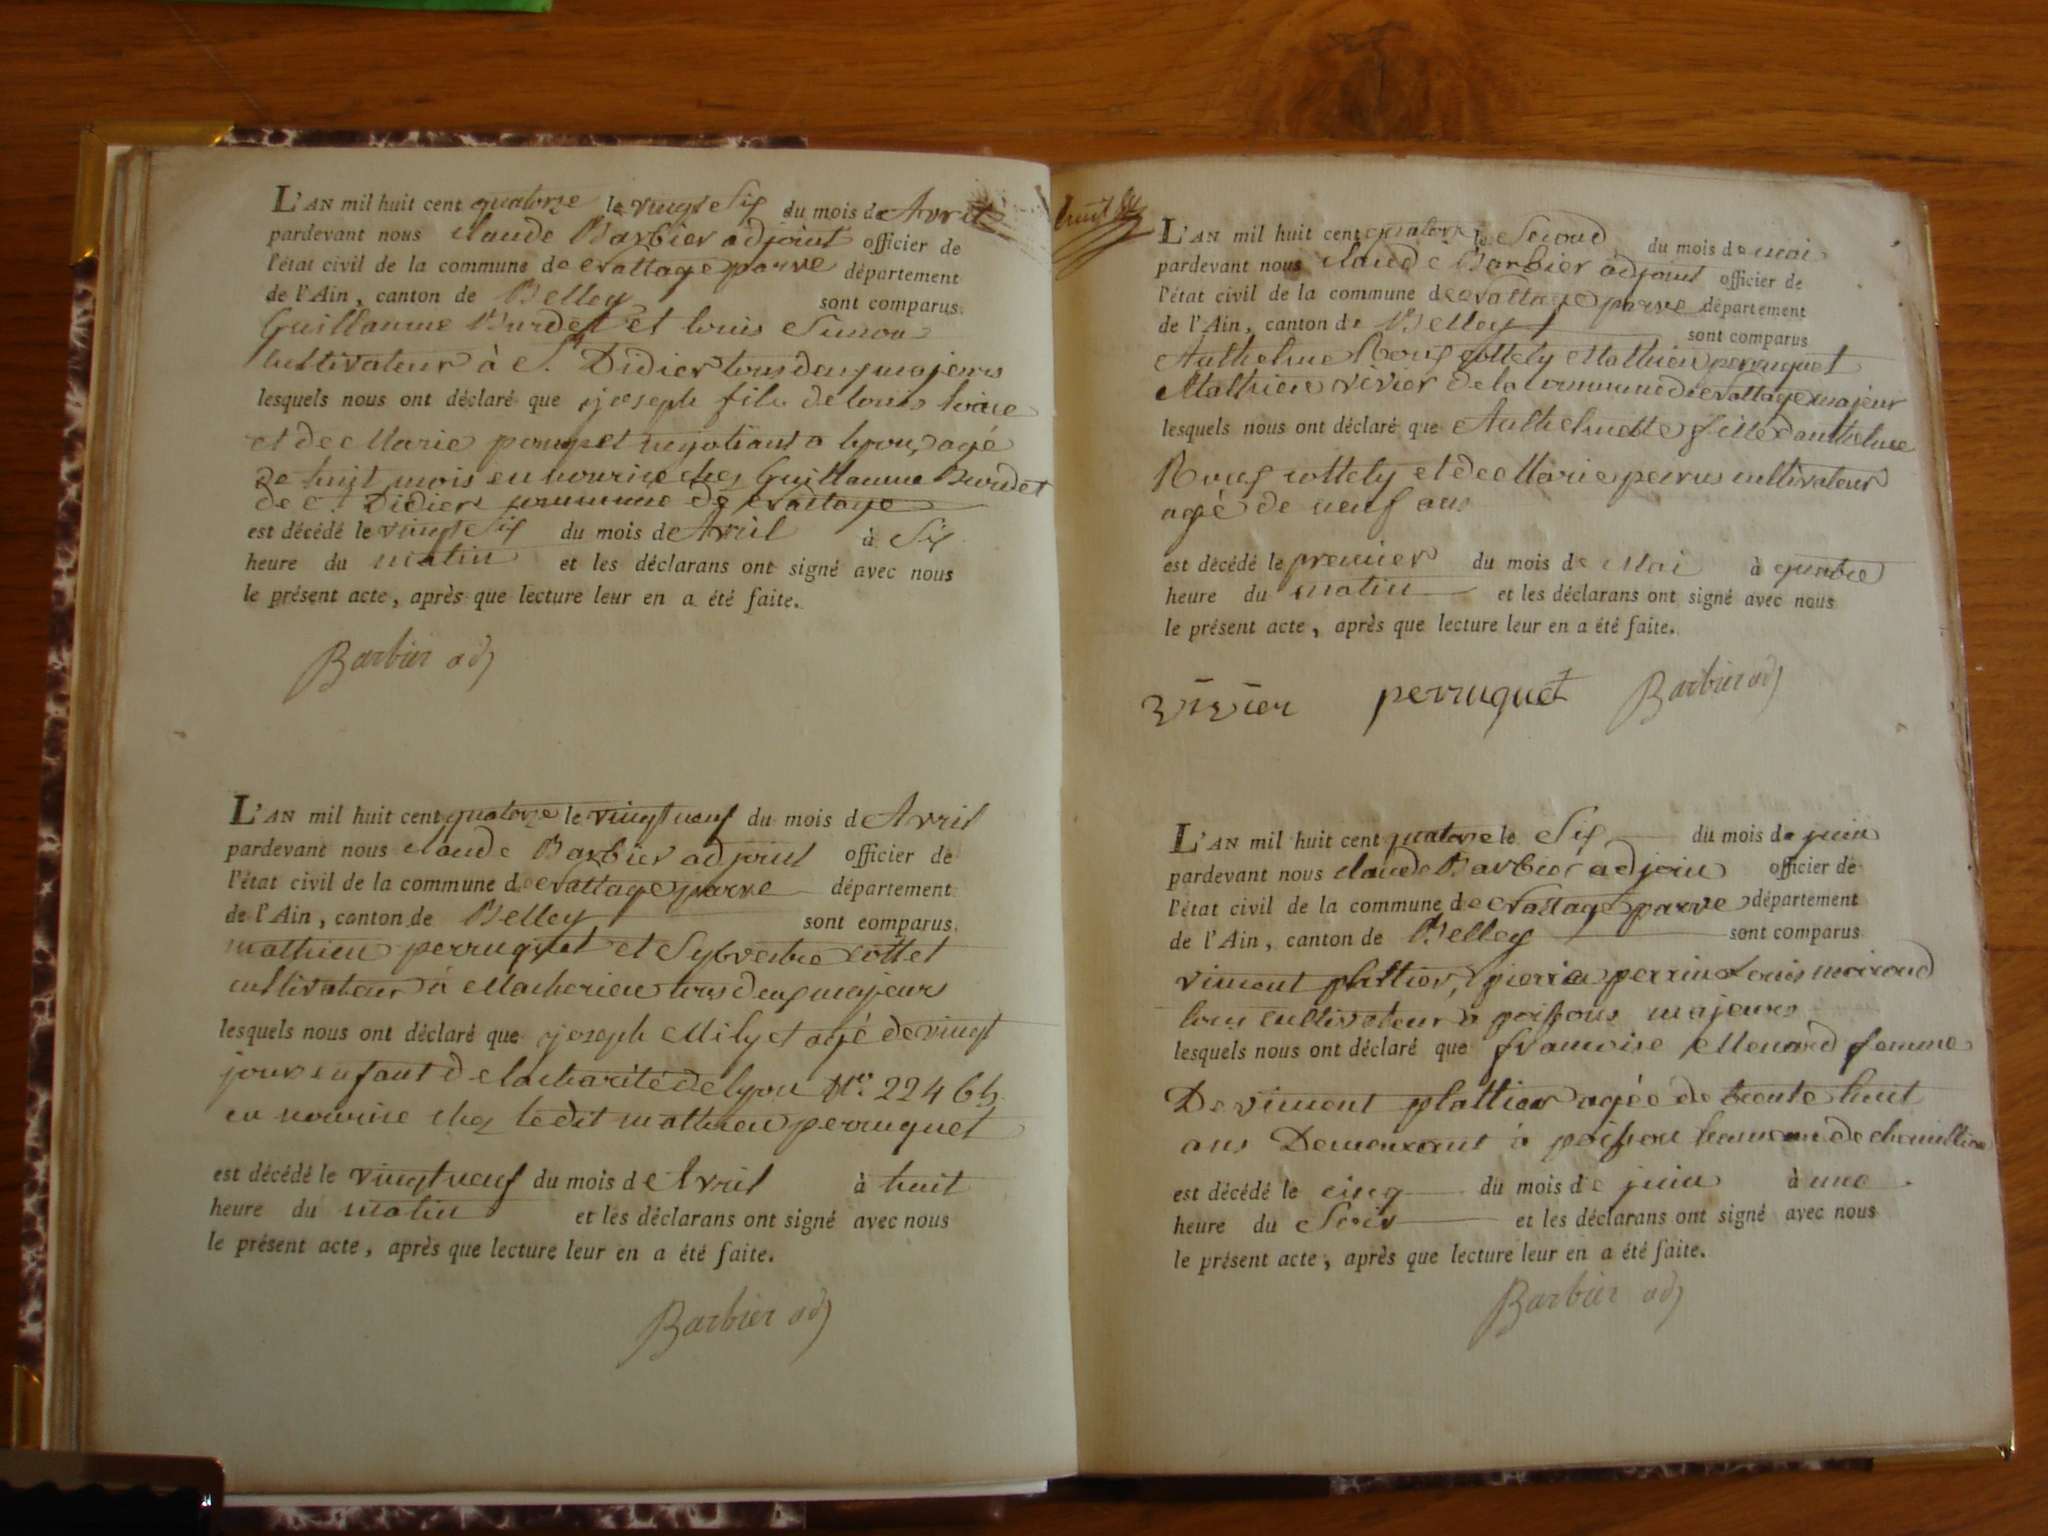 L'AN mil huit cent quatorze le vingt Six du mois de Avril
pardevant nous claude Barbier adjoint officier de
l'état civil de la commune de vattage parve département
de l'Ain, canton de Belley sont comparus
Guillaume Burdet et louis Simon
cultivateur à St. Didier tous deux majeurs
lesquels nous ont déclaré que joseph fils de louis
et de Marie negotiant a lyon, agé
de huit mois en nourice chez Guillaume Burdet
de St. Didier commune de vattage
est décédé le vingt Six du mois de Avril à Six
heure du matin et les déclarans ont signé avec nous
le présent acte, après que lecture leur en a été faite.
Barbier adj
L'AN mil huit cent quatorze le vingt neuf du mois d Avril
pardevant nous claude Barbier adjoint officier de
l'état civil de la commune de vattage parve département
de l'Ain, canton de Belley sont comparus
mathieu perruquet et Sylvestre cottet
cultivateur à tous deux majeurs
lesquels nous ont déclaré que joseph Milyet agé de vingt
jours enfant de la charité de lyon No. 224
en nourice chez le dit mathieu perruquet
est décédé le vingt neuf du mois d Avril à huit
heure du matin et les déclarans ont signé avec nous
le présent acte, après que lecture leur en a été faite.
Barbier adj
huit
L'AN mil huit cent quatorze le Second du mois de mai
pardevant nous claude Barbier adjoint officier de
l'état civil de la commune de vattage parve département
de l'Ain, canton de Belley sont comparus
Anthelme Roux cottety Mathieu perruquet
Mathieu vivier de la commune de vattage majeur
lesquels nous ont déclaré que Anthelmette fille d'anthelme
Roux cottety et de Marie perrus cultivateur
agé de neuf ans
est décédé le premier du mois de Mai à quatre
heure du matin et les déclarans ont signé avec nous
le présent acte, après que lecture leur en a été faite.
vivier perruquet Barbier adj
L'AN mil huit cent quatorze le Six du mois de juin
pardevant nous claude Barbier adjoin officier de
l'état civil de la commune de vattage parve département
de l'Ain, canton de Belley sont comparus
vincent plattier, pierre perrin Louis
tous cultivateur à poissons majeurs
lesquels nous ont déclaré que francoise Menard femme
De vincent plattier agée de trente huit
ans Demeurant à poisson hameau de
est décédé le cinq du mois de juin à une
heure du Soir et les déclarans ont signé avec nous
le présent acte, après que lecture leur en a été faite.
Barbier adj